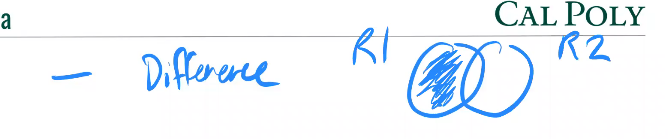 a CAL POLY
— Difference R1 R2